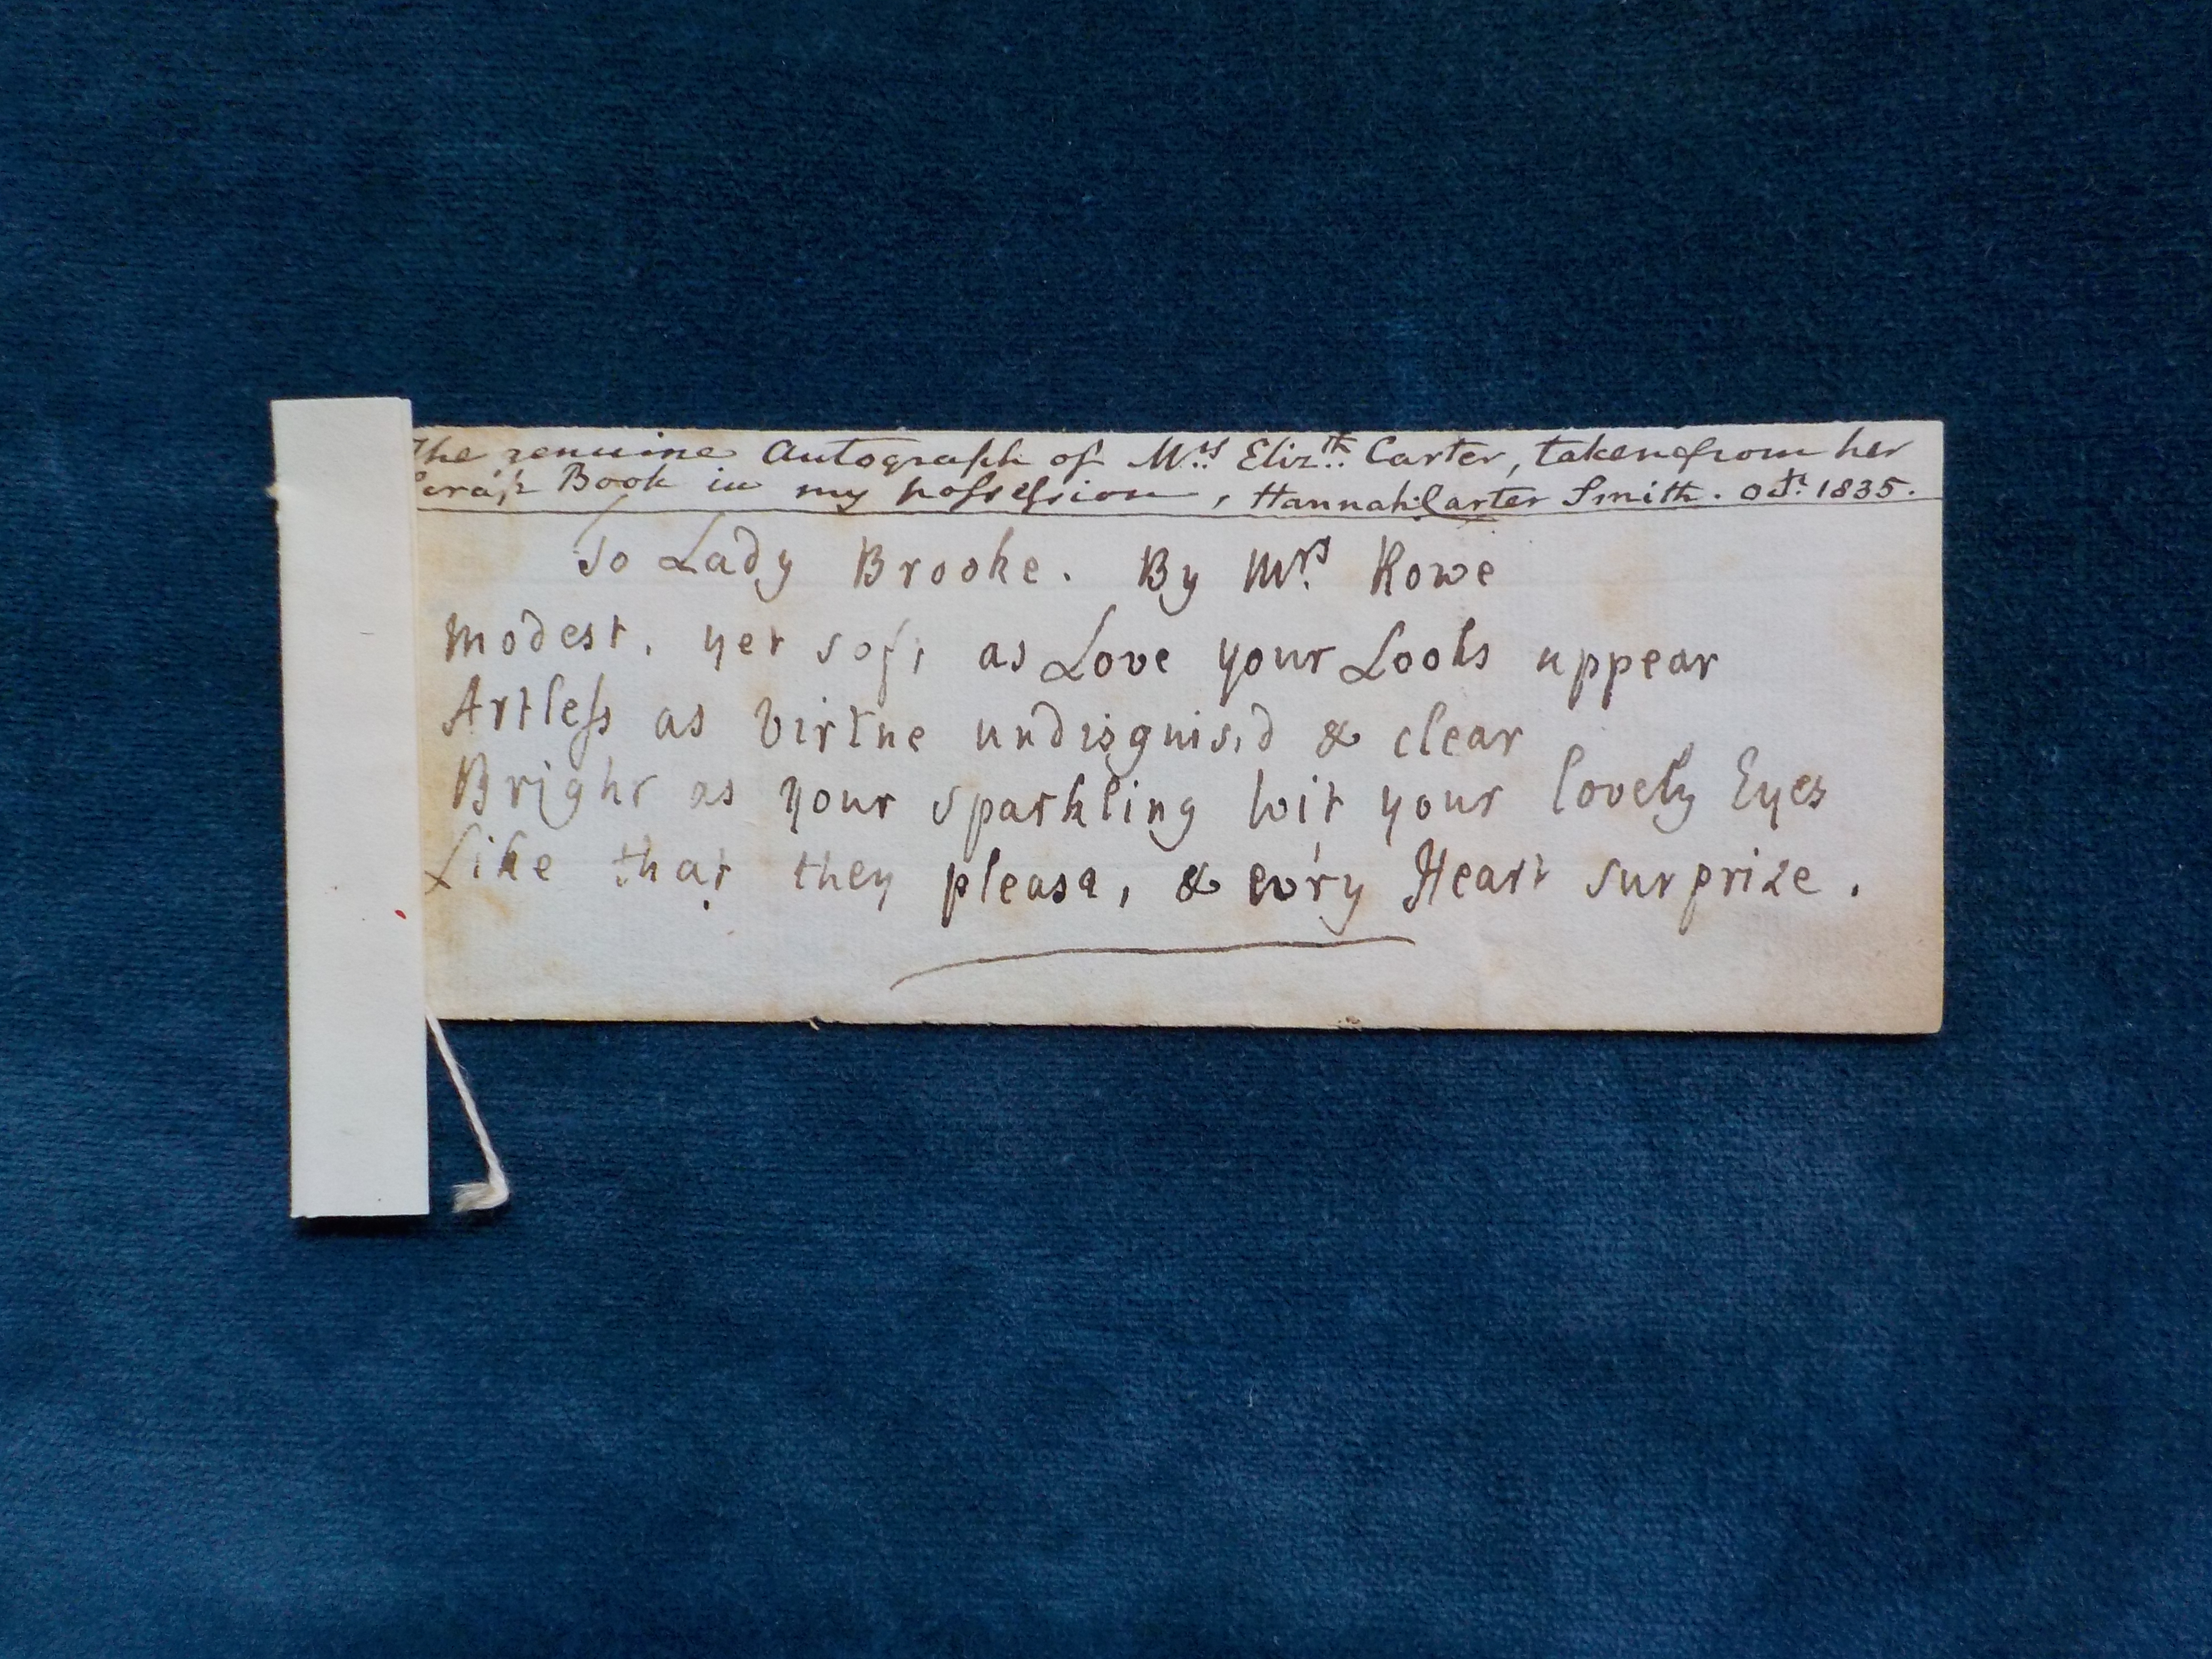 The genuine Autograph of Mrs Elizth Carter, taken from her
Scrap Book in my possession, Hannah Carter Smith. Octr 1835.
To Lady Brooke. By Mrs Rowe
Modest, yet soft as Love your Looks appear
Artless as Virtue undisguis'd & clear
Bright as your sparkling Wit your lovely Eyes
Like that they please, & ev'ry Heart surprize.